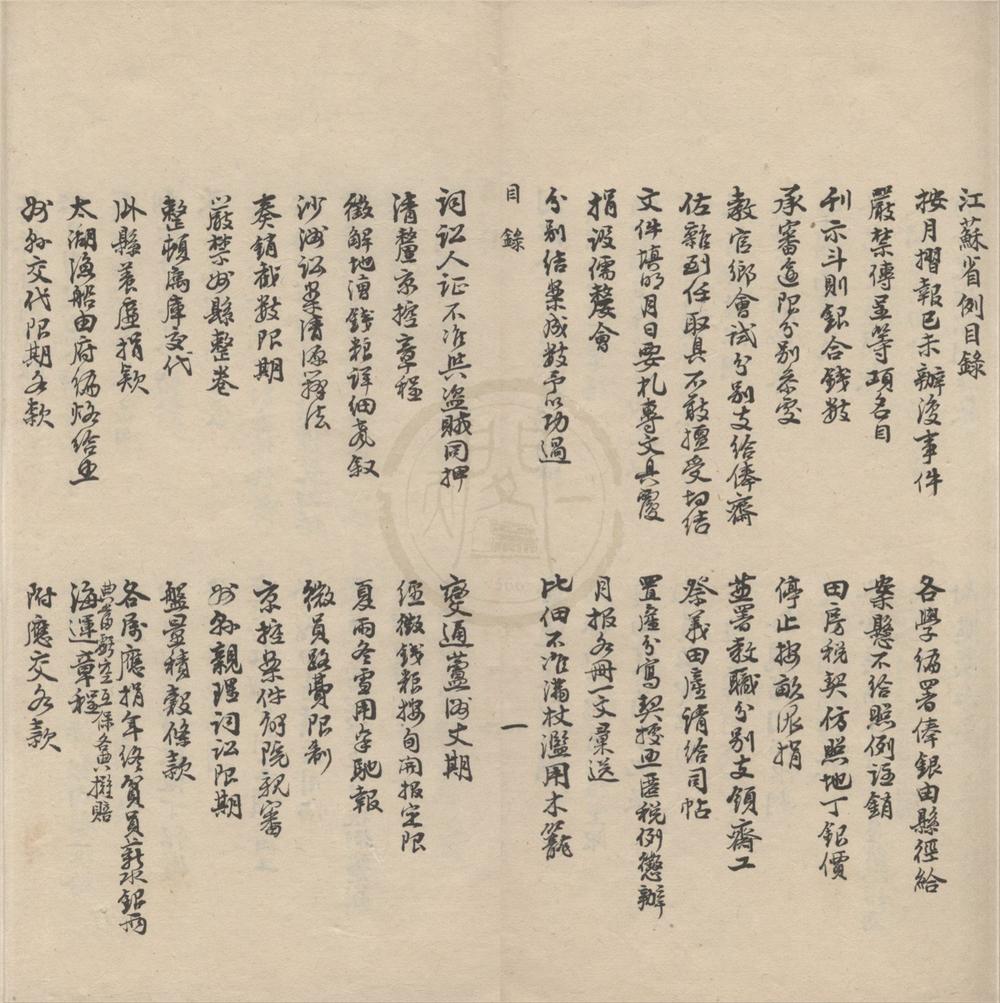 江蘇省例目錄
按月摺報已未辦浚事件
各學編署俸銀由縣徑給
嚴禁傳呈等項名目
案懸不給照例註銷
刊示斗則銀合錢數
田房稅契仿照地丁銀價
承審逾限分別參處
停止按畝派捐
教官鄉會試分別支給俸齋
兼署教職分別支領齋工
佐雜到任取具不敢擅受切結
祭義田產請給司帖
文件填明月日要札專文具覆
置產分寫契據照匿稅例懲辦
捐設儒嫠會
月报各冊一文彙送
分别结案成數予以功過
比佃不准滿杖濫用木籠
目錄
一
詞訟人証不准與盜賊同押
變通蘆洲丈期
清釐京控章程
經徵錢粮按旬開报定限
徵解地漕錢粮詳細亮叙
夏雨冬雪用印馳報
沙洲訟案清源辦法
微員路費限制
奏銷截數限期
京控案件何院親審
嚴禁州縣整卷
州縣親理詞訟限期
整頓廒庫交代
盤量積穀條款
州縣養廉捐款
各属應捐年终貿員薪水銀兩
典當虧空互保各典攤賠
太湖漁船由府編烙给
海運章程
州縣交代限期各款
附應交各款